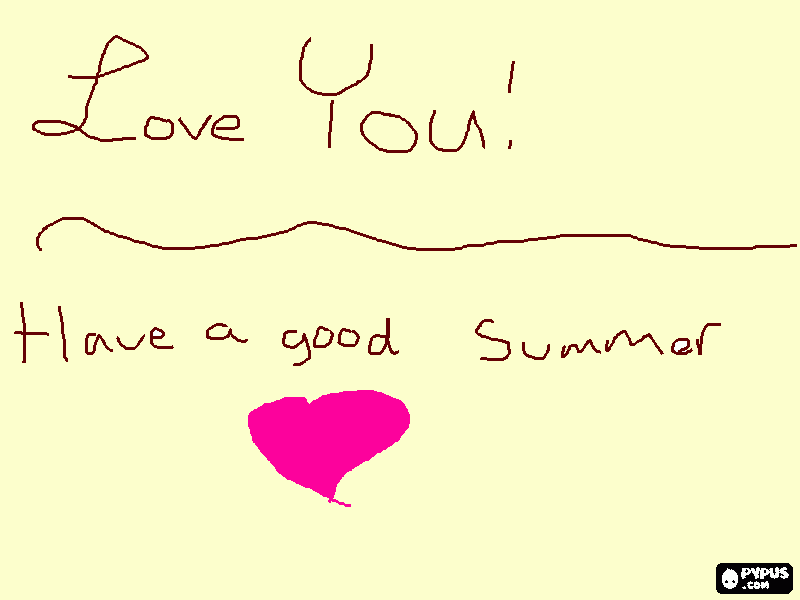 Love You!
Have a good Summer
PYPUS
.COM